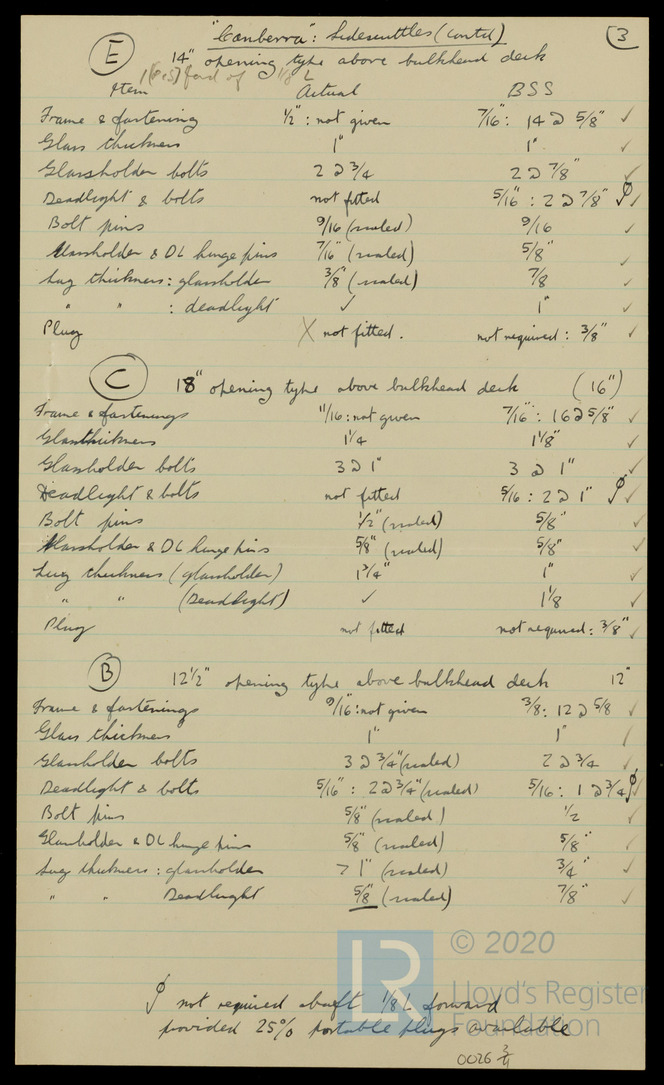 "Canberra": Sidescuttles (contd) 3
E 14" opening type above bulkhead deck
1 (P&S) ford of 1/8 L
Item Actual BSS
Frame & fastening 1/2" : not given 7/16" : 14 @ 5/8" ✓
Glass thickness 1" 1" ✓
Glassholder bolts 2 @ 3/4 2 @ 7/8" ✓
Deadlight & bolts not fitted 5/16" : 2 @ 7/8" ∮ ✓
Bolt pins 9/16 (scaled) 9/16 ✓
Glassholder & DL hinge pins 7/16" (scaled) 5/8" ✓
Lug thickness : glassholder 3/8" (scaled) 7/8 ✓
" " : deadlight ✓ 1" ✓
Plug X not fitted. not required : 3/8" ✓
C 18" opening type above bulkhead deck (16")
Frame & fastenings 11/16 : not given 7/16" : 16 @ 5/8" ✓
Glass thickness 1 1/4 1 1/8" ✓
Glassholder bolts 3 @ 1" 3 @ 1" ✓
Deadlight & bolts not fitted 5/16 : 2 @ 1" ∮ ✓
Bolt pins 1/2" (scaled) 5/8" ✓
Glassholder & DL hinge pins 5/8" (scaled) 5/8" ✓
Lug thickness (glassholder) 1 3/4" 1" ✓
" " (Deadlight) ✓ 1 1/8 ✓
Plug not fitted not required : 3/8" ✓
B 12 1/2" opening type above bulkhead deck 12"
Frame & fastenings 9/16" : not given 3/8 : 12 @ 5/8 ✓
Glass thickness 1" 1" ✓
Glassholder bolts 3 @ 3/4" (scaled) 2 @ 3/4 ✓
Deadlight & bolts 5/16" : 2 @ 3/4" (scaled) 5/16 : 1 @ 3/4 ∮ ✓
Bolt pins 5/8" (scaled) 1/2 ✓
Glassholder & DL hinge pins 5/8" (scaled) 5/8" ✓
Lug thickness : glassholder > 1" (scaled) 3/4" ✓
" " Deadlight 5/8" (scaled) 7/8" ✓
© 2020
LR Lloyd's Register
Foundation
∮ not required abaft 1/8 L forward
provided 25% portable plugs available
0026 3/4